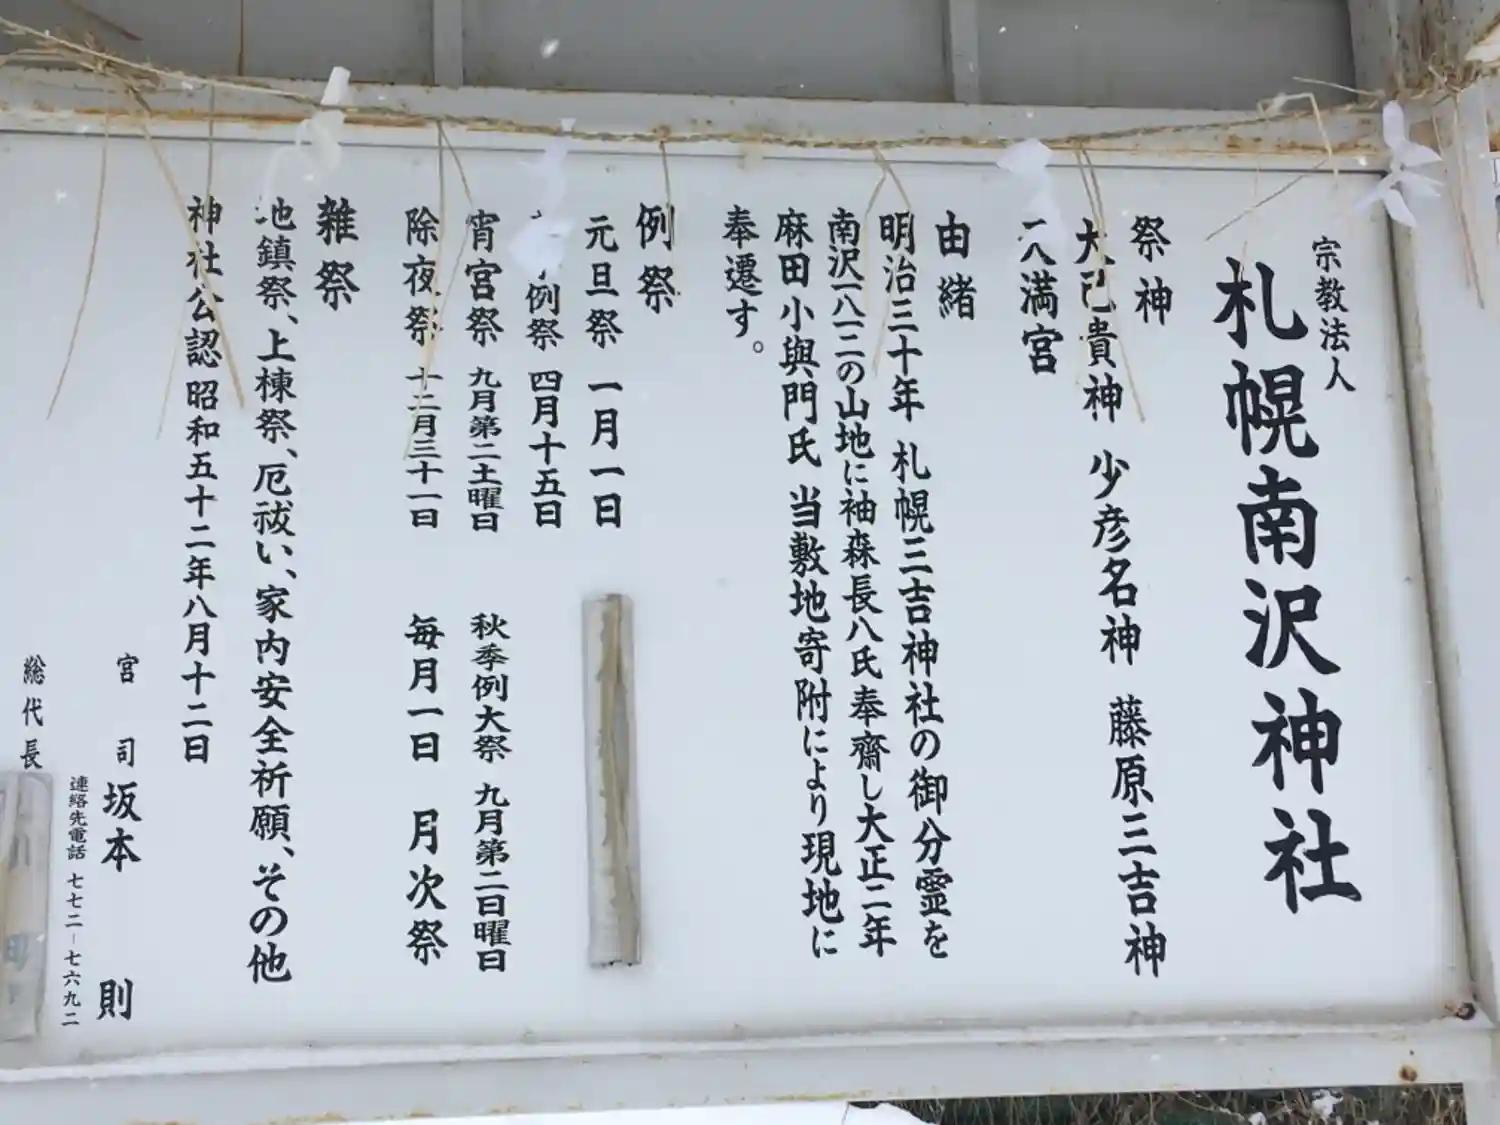 宗教法人
札幌南沢神社
祭神
大己貴神 少彦名神 藤原三吉神
天満宮
由緒
明治三十年 札幌三吉神社の御分霊を
南沢一八一二の山地に袖森長八氏奉齋し大正二年
麻田小與門氏 当敷地寄附により現地に
奉遷す。
例祭
元旦祭 一月一日
例祭 四月十五日
宵宮祭 九月第二土曜日 秋季例大祭 九月第二日曜日
除夜祭 十二月三十一日 毎月一日 月次祭
雑祭
地鎮祭、上棟祭、厄祓い、家内安全祈願、その他
神社公認 昭和五十二年八月十二日
宮司 坂本 則
連絡先電話 七七二－七六九二
総代長